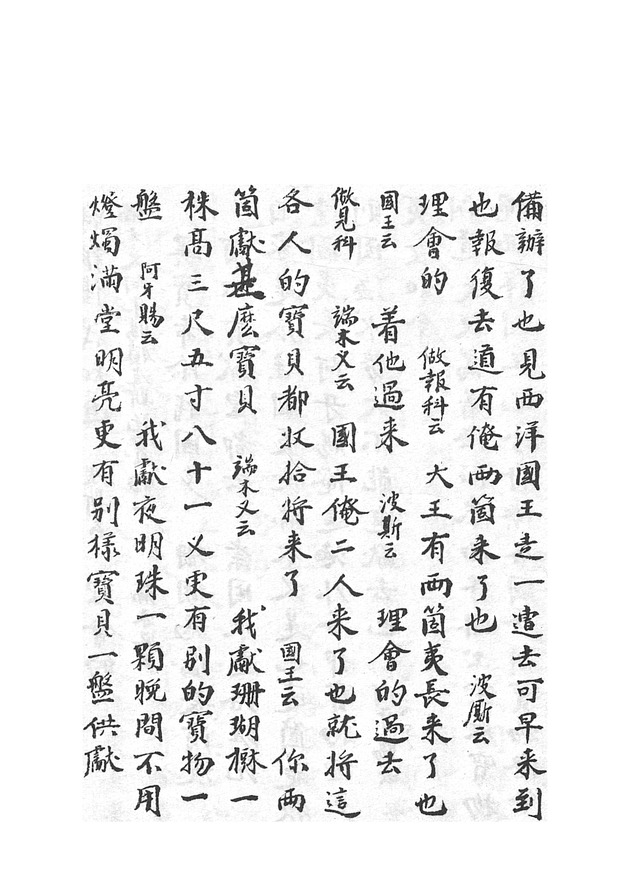 備辦了也見西洋國王走一遭去可早来到
也報復去道有俺兩箇来了也 波厮云
理會的 做報科云 大王有兩箇夷長来了也
國王云 着他過来 波斯云 理會的過去
做見科 端木义云 國王俺二人来了也就將這
各人的寶貝都収拾將来了 國王云 你兩
箇獻甚麽寶貝 端木义云 我獻珊瑚樹一
株高三尺五寸八十一义更有别的寶物一
盤 阿牙賜云 我獻夜明珠一顆晚間不用
燈燭滿堂明亮更有别樣寶貝一盤供獻